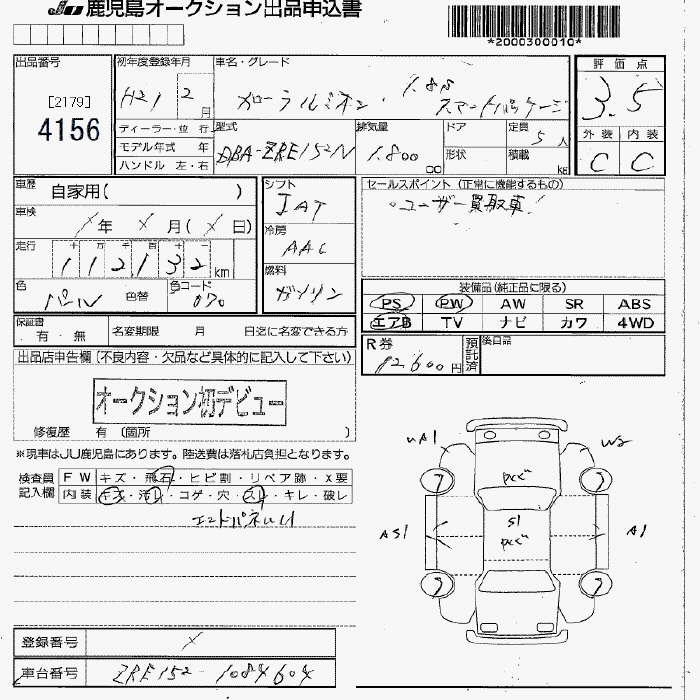 JU 鹿児島オークション出品申込書
*2000300010*
出品番号
[2179]
4156
初年度登録年月
H21 2月
車名・グレード
カローラルミオン・ 1.8S スマートパッケージ
評価点
3.5
外装 内装
C C
ディーラー・並行
モデル年式 年
ハンドル 左・右
型式
DBA-ZRE152N
排気量
1.800 cc
ドア
形状
定員
5人
積載
kg
車歴
自家用( )
車検
/年 X月(X日)
走行
十 万 千 百 十 一
112132 km
色
パール
色替
色コード
070
シフト
IAT
冷房
AAC
燃料
ガソリン
セールスポイント (正常に機能するもの)
。ユーザー買取車!
装備品(純正品に限る)
PS PW AW SR ABS
エアB TV ナビ カワ 4WD
保証書
有・無
名変期限 月 日迄に名変できる方
R券
12600円
預託済
後日品
出品店申告欄(不良内容・欠品など具体的に記入して下さい)
オークション初デビュー
修復歴 有 (箇所 )
※現車はJU鹿児島にあります。陸送費は落札店負担となります。
検査員記入欄
FW キズ・飛石・ヒビ割・リペア跡・X要
内装 キズ・汚れ・コゲ・穴・スレ・キレ・破レ
UA1
W2
AS1
A1
S1
登録番号
X
車台番号
ZRE152-1084604